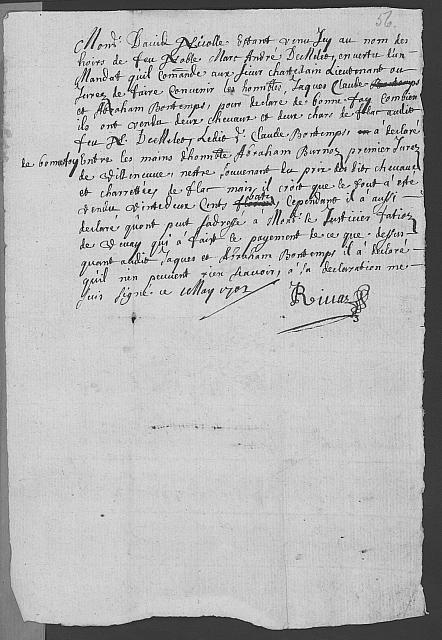 56.
Monsr David Nicolle Estant venu Icy au nom des
hoirs de feu Noble Marc André DuMelet, en vertu d'un
Mandat qu'il Comande aux sieur chastelain Lieutenant ou
Jurez de faire Convenir les honnestes, Jaques Claude
et Abraham Bontemps, pour declaré de bonne foy Combien
ils ont vendu deux chevaux et deux chars de
feu DuMelet Ledit Claude Bontemps a declaré
de bonne foy entre les mains d'honneste Abraham Burnoz premier Jurez
de Villeneuve, nestre souvenant du prix desdits chevaux
et charrettées de mais il croit que le tout a esté
vendu vinte deux Cents batz, Cependant il a aussi
declaré qu'ont peut sadressé à Monsr le Justicier
de Vevay qui a fait le payement de ce que dessus
quant audit Jaques et Abraham Bontemps il a declaré
qu'il n'en peuvent rien scavoir, a sa declaration me
suis signé ce May 1702
Rivaz